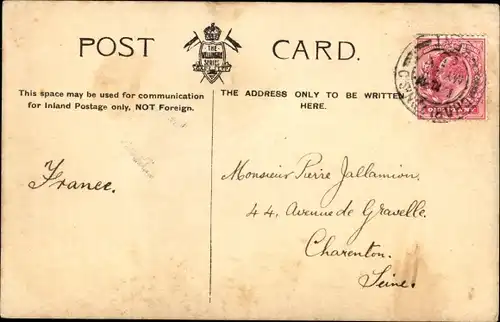 POST CARD.
THE
SERIES
This space may be used for communication
for Inland Postage only, NOT Foreign.
THE ADDRESS ONLY TO BE WRITTEN
HERE.
France.
Monsieur Pierre Jallamion,
44, Avenue de Gravelle.
Charenton.
Seine.